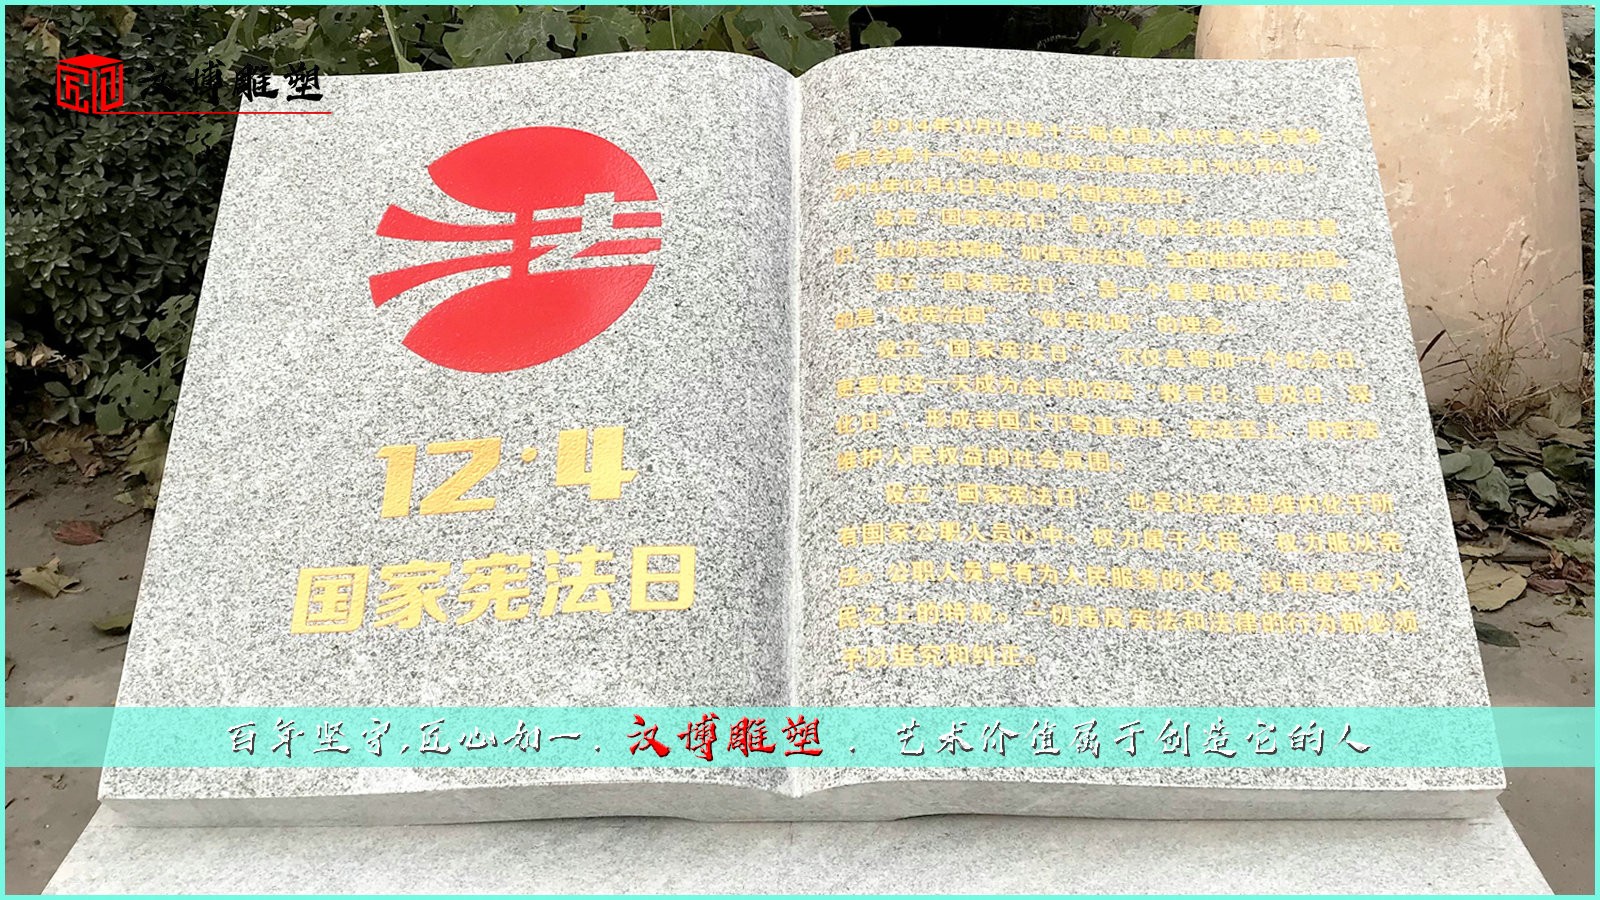 汉博雕塑
法
12·4
国家宪法日
2014年11月1日第十二届全国人民代表大会常务
委员会第十一次会议通过设立国家宪法日为12月4日。
2014年12月4日是中国首个国家宪法日。
设定“国家宪法日”是为了增强全社会的宪法意
识、弘扬宪法精神、加强宪法实施、全面推进依法治国。
设立“国家宪法日”，是一个重要的仪式，传递
的是“依宪治国”“依宪执政”的理念。
设立“国家宪法日”，不仅是增加一个纪念日，
更要使这一天成为全民的宪法“教育日、普及日、深
化日”，形成举国上下尊重宪法、宪法至上、用宪法
维护人民权益的社会氛围。
设立“国家宪法日”，也是让宪法思维内化于所
有国家公职人员心中。权力属于人民，权力服从宪
法。公职人员只有为人民服务的义务，没有凌驾于人
民之上的特权。一切违反宪法和法律的行为都必须
予以追究和纠正。
百年坚守,匠心如一．汉博雕塑．艺术价值属于创造它的人